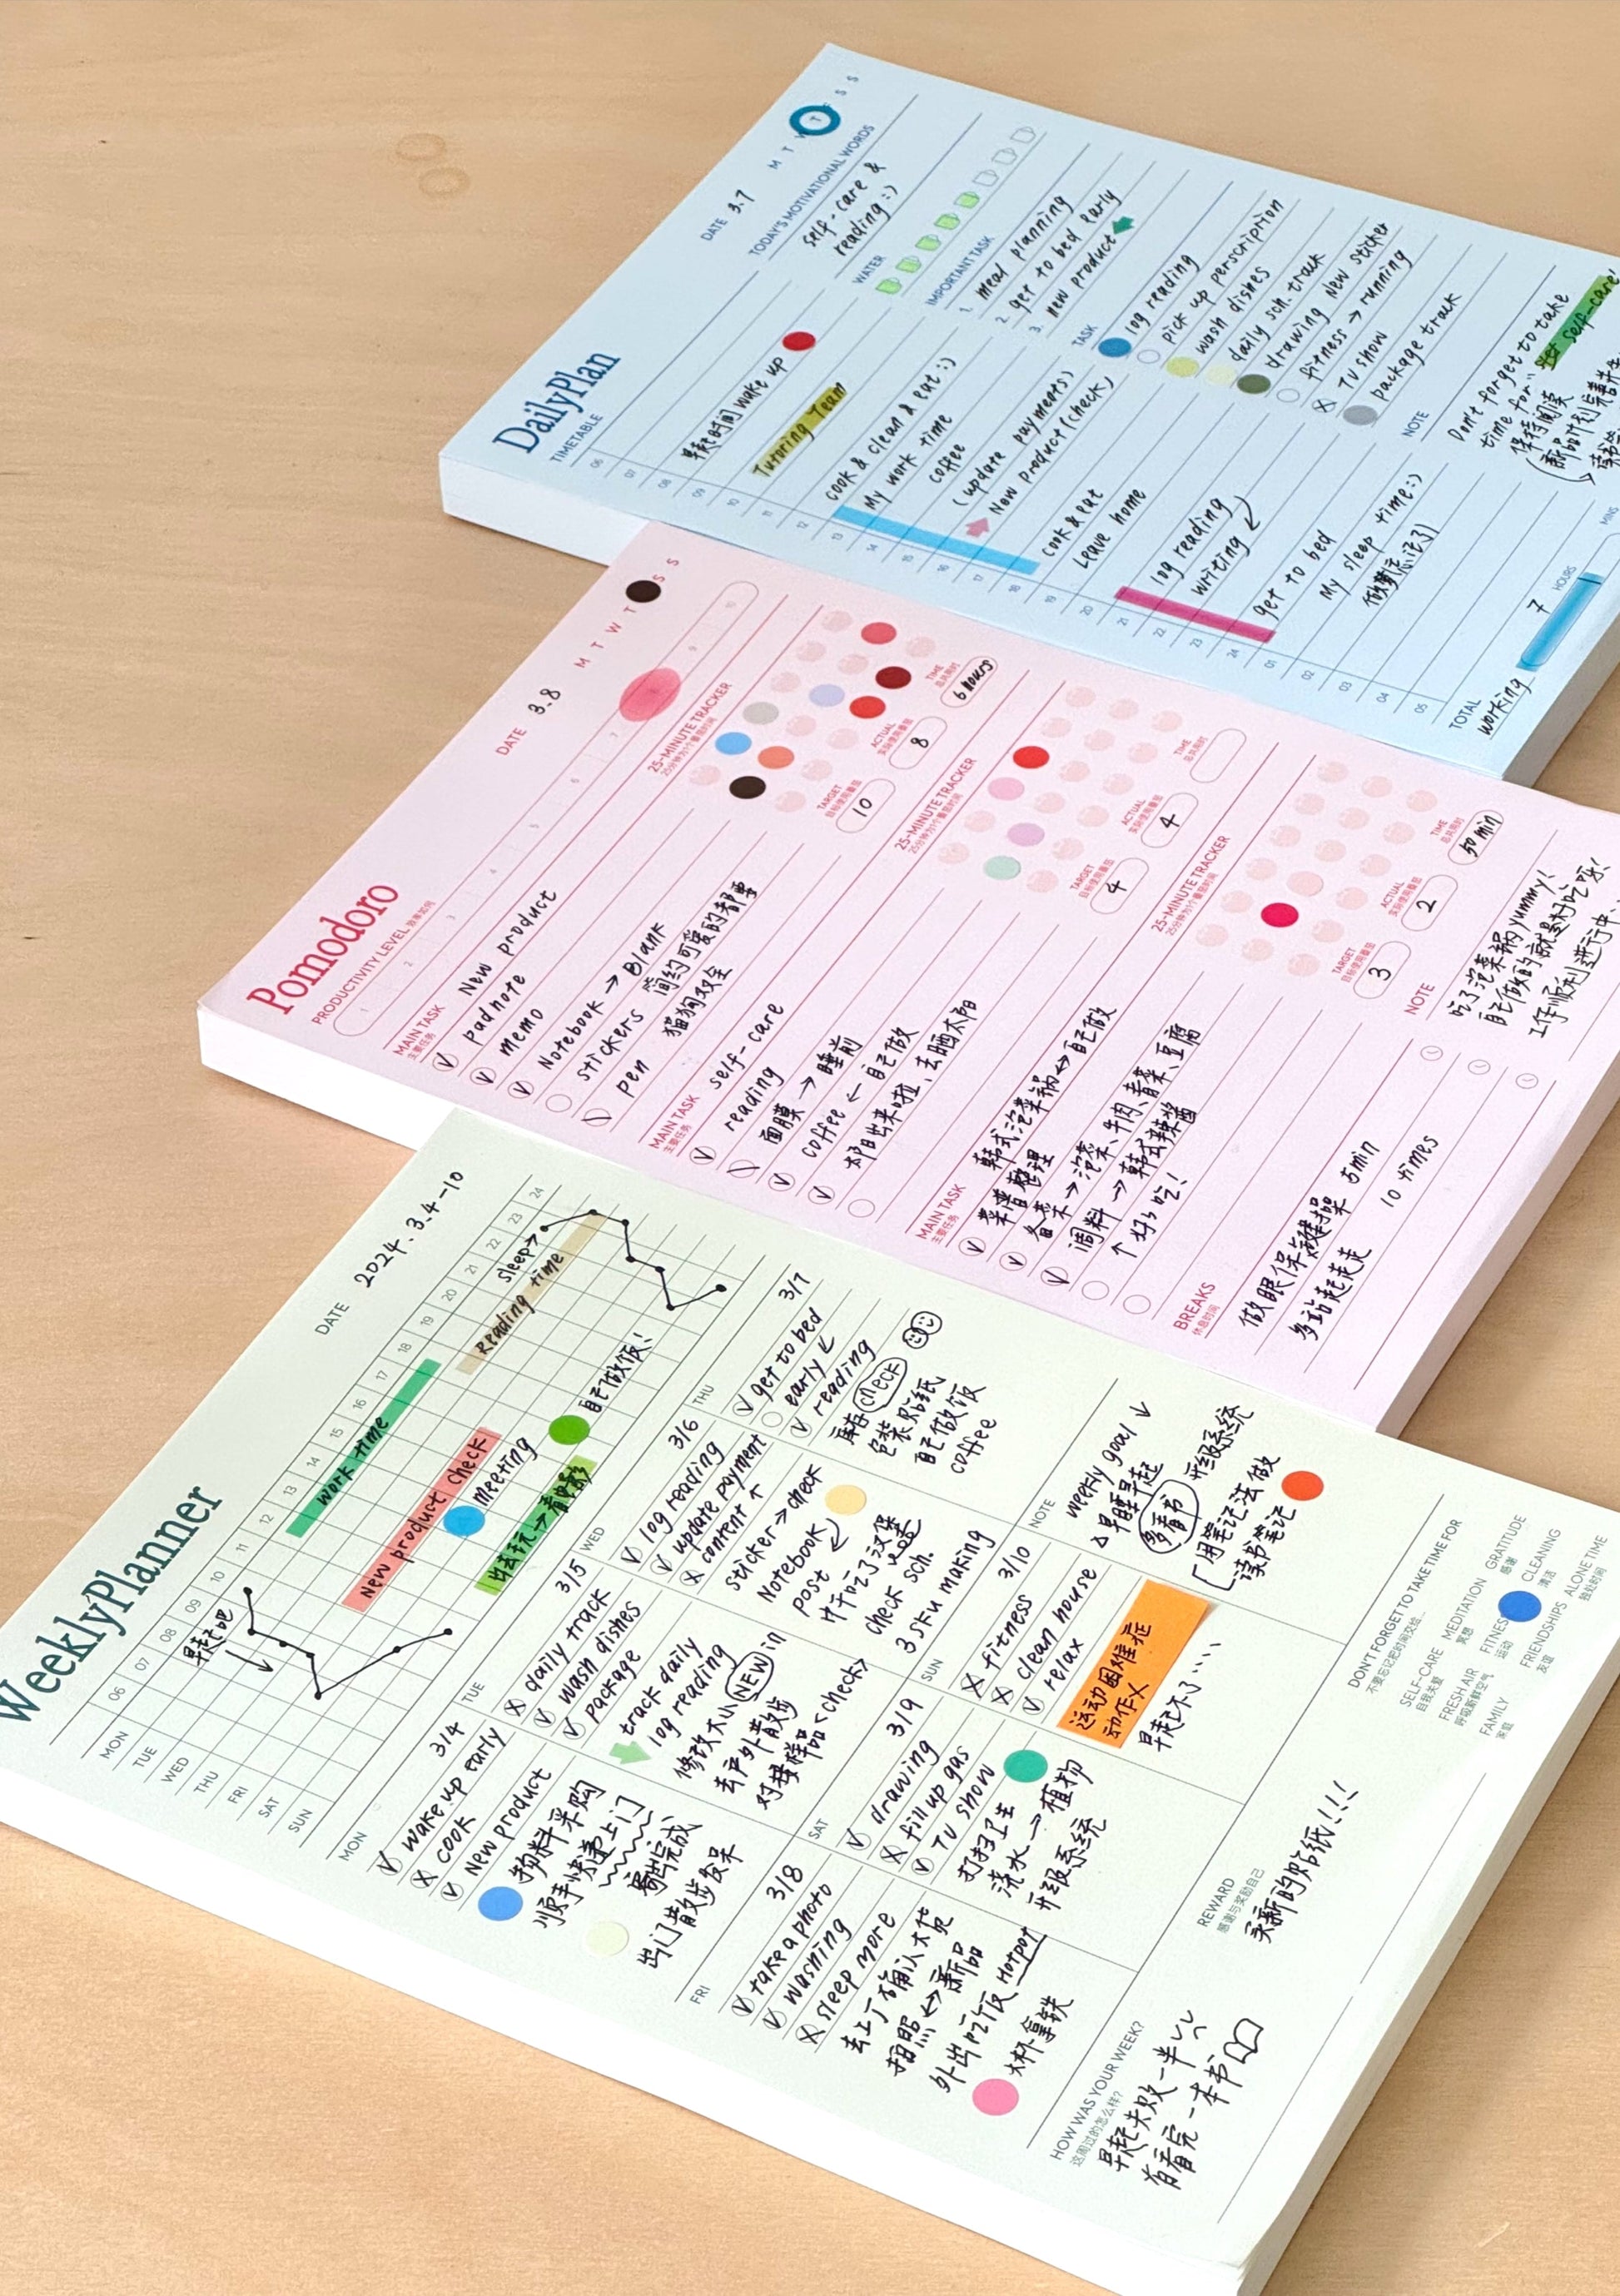 DailyPlan
DATE 3.7
M T W T F S S
TIMETABLE
TODAY'S MOTIVATIONAL WORDS
self-care &
reading :)
WATER
IMPORTANT TASK
1. meal planning
2. get to bed early
3. new product
TASK
log reading
pick up perscription
wash dishes
daily sch. track
drawing new sticker
fitness → running
TV show
package track
NOTE
Don't forget to take
time for..
self-care!
保持阅读
06
07
08 早起时间 wake up
09
10 Tutoring Team
11
12 cook & clean & eat :)
13 My work time
14 coffee
15 (update payments)
16 New product (check)
17
18 cook & eat
19 Leave home
20
21 log reading
22 writing
23
24 get to bed
01
02 My sleep time :)
03
04
05
TOTAL
working
7 HOURS
MINS
Pomodoro
DATE 3.8
M T W T S S
PRODUCTIVITY LEVEL 效率如何
1 2 3 4 5 6 7 9 10
MAIN TASK
主要任务
New product
padnote
memo
Notebook → Blank
stickers 简约可爱的都要
pen 猫狗双全
25-MINUTE TRACKER
25分钟为1个番茄时间
TARGET
目标使用番茄
10
ACTUAL
实际使用番茄
8
TIME
总共用时
6 hours
MAIN TASK
主要任务
self-care
reading
面膜 → 睡前
coffee ← 自己做
太阳出来啦, 去晒太阳
25-MINUTE TRACKER
25分钟为1个番茄时间
TARGET
目标使用番茄
4
ACTUAL
实际使用番茄
4
TIME
总共用时
MAIN TASK
主要任务
韩式泡菜锅 ↔ 自己做
菜谱整理
备菜 → 泡菜、牛肉、青菜、豆腐
调料 → 韩式辣酱
↑ 好好吃!
25-MINUTE TRACKER
25分钟为1个番茄时间
TARGET
目标使用番茄
3
ACTUAL
实际使用番茄
2
TIME
总共用时
50 min
BREAKS
休息时间
做眼保健操 5min
多站起走走 10 times
NOTE
吃了泡菜锅 yummy!
自己做的就是好吃呀!
工作顺利进行中..
WeeklyPlanner
DATE 2024. 3.4-10
06 07 08 09 10 11 12 13 14 15 16 17 18 19 20 21 22 23 24
MON
TUE
WED
THU
FRI
SAT
SUN
早起吧
work time
sleep →
Reading time
New product check
meeting
出去玩 → 看电影
自己做饭!
MON 3/4
wake up early
cook
New product
物料采购
顺手快递上门
寄出完成
出门散步发呆
TUE 3/5
daily track
wash dishes
package
track daily
log reading
修改大小 NEW in
去户外散步
对接样品 <check>
WED 3/6
log reading
update payment
content ↑
sticker → check
Notebook
post
中午吃了汉堡
check sch.
3 sku making
THU 3/7
get to bed
early
reading
库存 check
包装贴纸
自己做饭
coffee
FRI 3/8
take a photo
washing
sleep more
去工厂确认大货
拍照 ↔ 新品
外出吃饭 HOTPOT
大杯拿铁
SAT 3/9
drawing
fill up gas
TV show
打扫卫生
浇水 → 植物
升级系统
SUN 3/10
fitness
clean house
relax
运动困难症
动作X
早起不了....
NOTE
weekly goal ↓
早睡早起
多看书
升级系统
用笔记法做
读书笔记
HOW WAS YOUR WEEK?
这周过的怎么样?
早起失败一半
有看完一本书
REWARD
感谢与奖励自己
买新的贴纸!!!
DON'T FORGET TO TAKE TIME FOR
不要忘记把时间交给...
SELF-CARE MEDITATION GRATITUDE
自我关爱 冥想 感谢
FRESH AIR FITNESS CLEANING
呼吸新鲜空气 运动 清洁
FAMILY FRIENDSHIPS ALONE TIME
家庭 友谊 独处时间